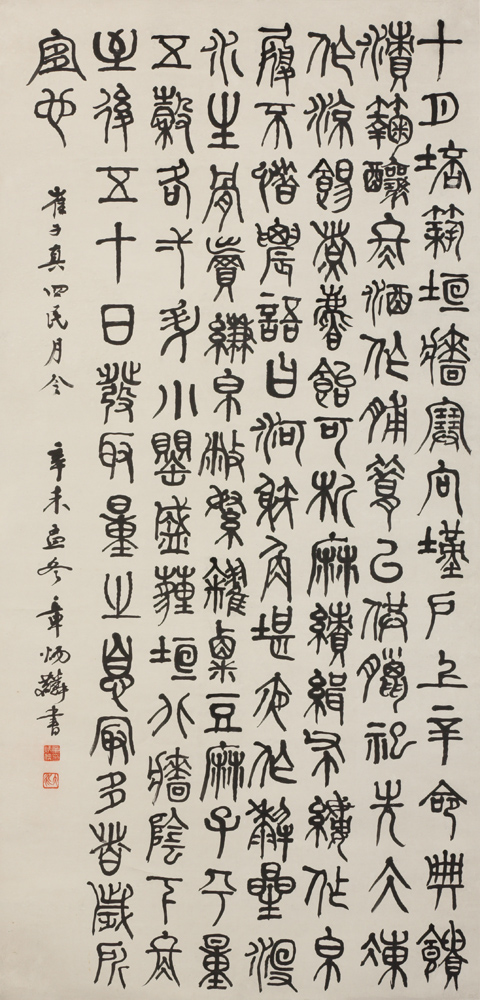 十月培築垣牆塞向墐戶上辛命典饋
漬麴釀冬酒作脯腊以供臘祀先仌凍
作涼餳煮暴飴可析麻績緝布縷作帛
履不借農語曰河射角堪夜作犂星沒
水生骨賣縑帛敝絮糴粟豆麻子平量
五穀各小罌盛薶垣北牆陰下冬
至後五十日發取量之息最多者歲所
宜也
崔子真四民月令 辛未孟冬 章炳麟書